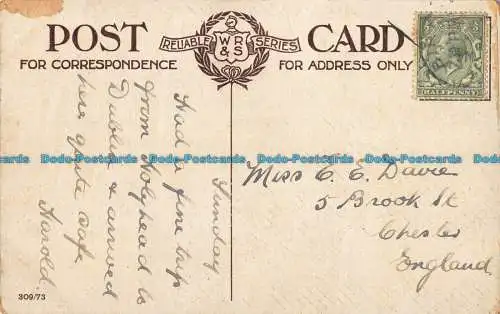 POST CARD
RELIABLE WR&S SERIES
FOR CORRESPONDENCE
FOR ADDRESS ONLY
HALFPENNY
Sunday
Had a fine trip
from Holyhead to
Dublin & arrived
here quite safe
Harold.
Miss E. E. Davie
5 Brook St
Chester
England
309/73
Dodo-Postcards Dodo-Postcards Dodo-Postcards Dodo-Postcards Dodo-Postcards Dodo-Postcards